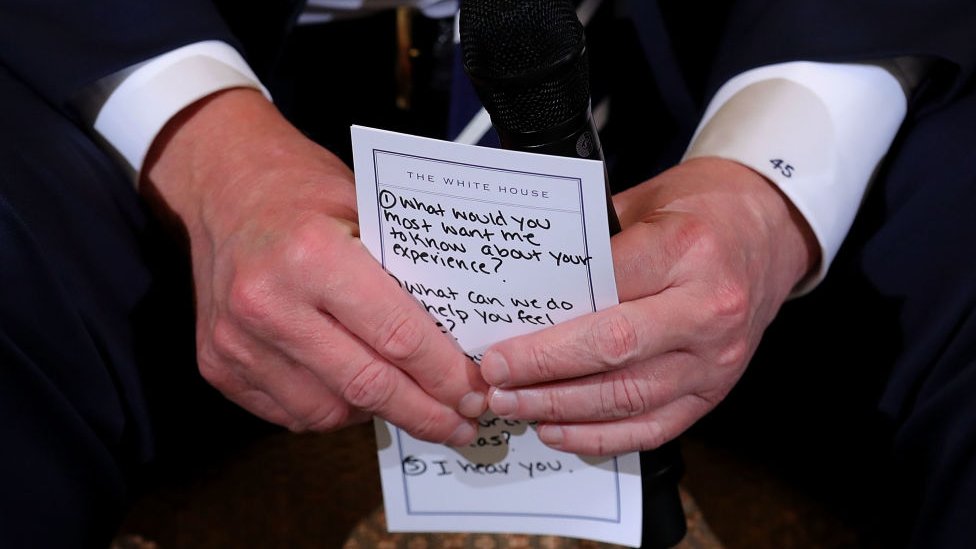 THE WHITE HOUSE
① What would you
most want me
to know about your
experience?
What can we do
help you feel
?
?
⑤ I hear you.
45